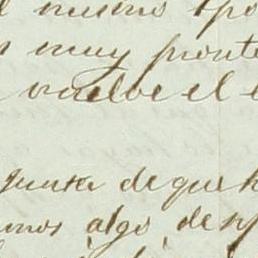 l mismo
muy pronto
vuelve el
junta de que
mos algo des